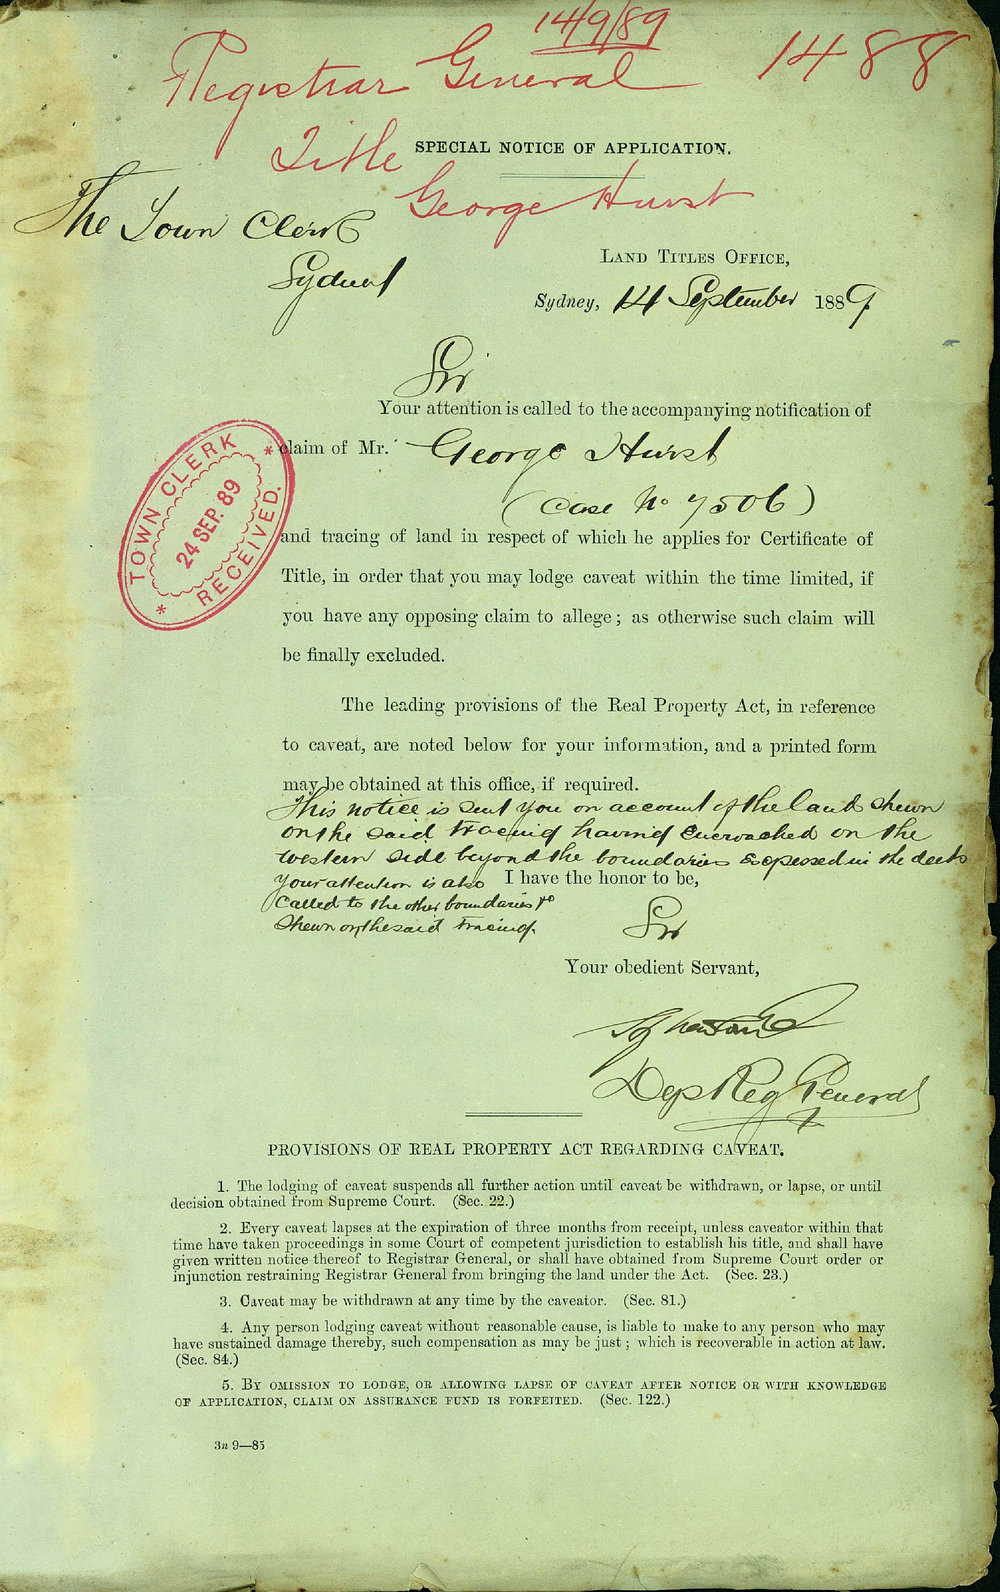 14/9/89
Registrar General 1488
Title
SPECIAL NOTICE OF APPLICATION.
George Hurst
The Town Clerk
Sydney
LAND TITLES OFFICE,
Sydney, 14 September 1889.
Sir
Your attention is called to the accompanying notification of
claim of Mr. George Hurst
(Case No 7506)
TOWN CLERK
24 SEP. 89
* RECEIVED. *
and tracing of land in respect of which he applies for Certificate of
Title, in order that you may lodge caveat within the time limited, if
you have any opposing claim to allege; as otherwise such claim will
be finally excluded.
The leading provisions of the Real Property Act, in reference
to caveat, are noted below for your information, and a printed form
may be obtained at this office, if required.
This notice is sent you on account of the land shewn
on the said tracing having encroached on the
western side beyond the boundaries expressed in the deeds
Your attention is also
I have the honor to be,
called to the other boundaries
shewn on the said tracing.
Sir
Your obedient Servant,
Dep Reg General
PROVISIONS OF REAL PROPERTY ACT REGARDING CAVEAT.
1. The lodging of caveat suspends all further action until caveat be withdrawn, or lapse, or until
decision obtained from Supreme Court. (Sec. 22.)
2. Every caveat lapses at the expiration of three months from receipt, unless caveator within that
time have taken proceedings in some Court of competent jurisdiction to establish his title, and shall have
given written notice thereof to Registrar General, or shall have obtained from Supreme Court order or
injunction restraining Registrar General from bringing the land under the Act. (Sec. 23.)
3. Caveat may be withdrawn at any time by the caveator. (Sec. 81.)
4. Any person lodging caveat without reasonable cause, is liable to make to any person who may
have sustained damage thereby, such compensation as may be just; which is recoverable in action at law.
(Sec. 84.)
5. BY OMISSION TO LODGE, OR ALLOWING LAPSE OF CAVEAT AFTER NOTICE OR WITH KNOWLEDGE
OF APPLICATION, CLAIM ON ASSURANCE FUND IS FORFEITED. (Sec. 122.)
3n 9—85